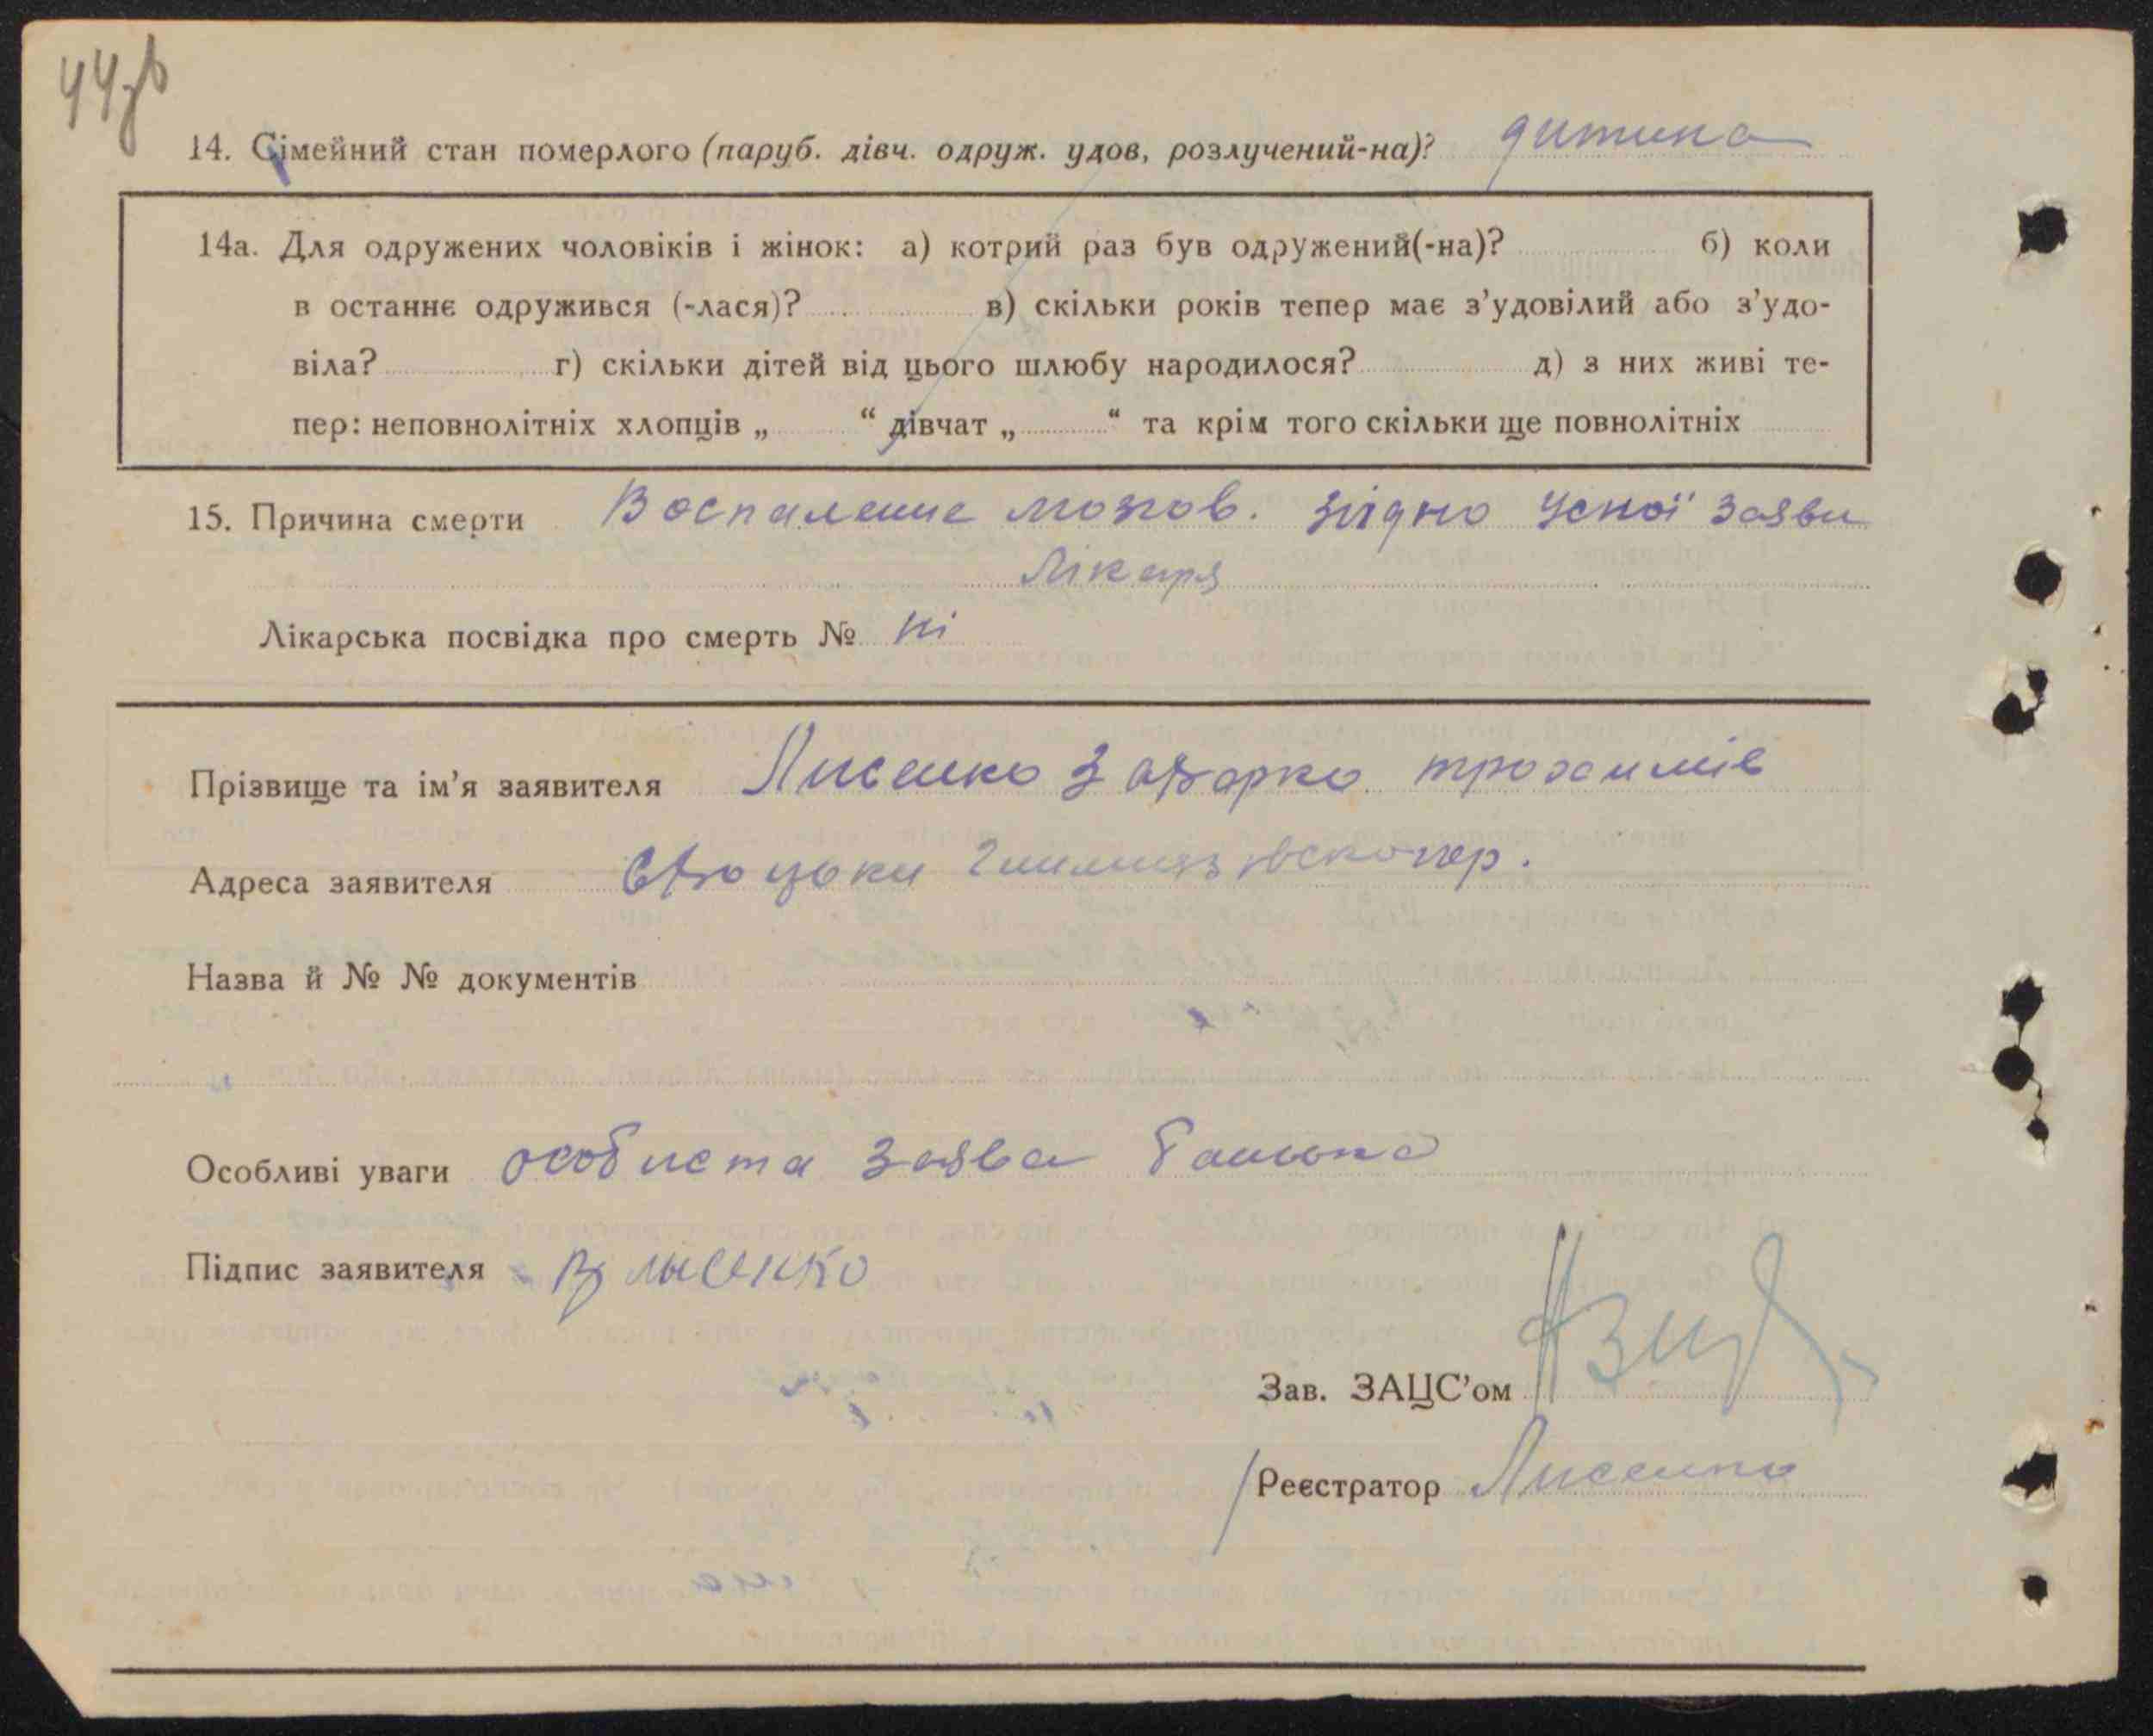 44зв
14. Сімейний стан померлого (паруб. дівч. одруж. удов, розлучений-на)? дитина
14а. Для одружених чоловіків і жінок: а) котрий раз був одружений(-на)? б) коли
в останнє одружився (-лася)? в) скільки років тепер має з’удовілий або з’удо-
віла? г) скільки дітей від цього шлюбу народилося? д) з них живі те-
пер: неповнолітніх хлопців „ “ дівчат „ “ та крім того скільки ще повнолітніх
15. Причина смерти Воспаление мозгов. згідно усної заяви
Лікаря
Лікарська посвідка про смерть № ні
Прізвище та ім’я заявителя Лисенко Захарко
Адреса заявителя
Назва й № № документів
Особливі уваги особиста заява батька
Підпис заявителя Лысенко
Зав. ЗАЦС’ом
Реєстратор Лисенко